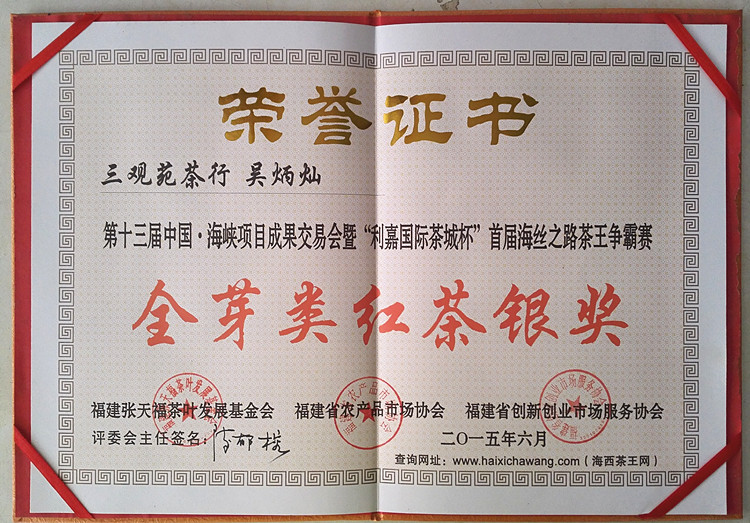 荣誉证书
三观苑茶行 吴炳灿
第十三届中国·海峡项目成果交易会暨“利嘉国际茶城杯”首届海丝之路茶王争霸赛
全芽类红茶银奖
福建张天福茶叶发展基金会 福建省农产品市场协会 福建省创新创业市场服务协会
评委会主任签名：
二〇一五年六月
查询网址：www.haixichawang.com（海西茶王网）